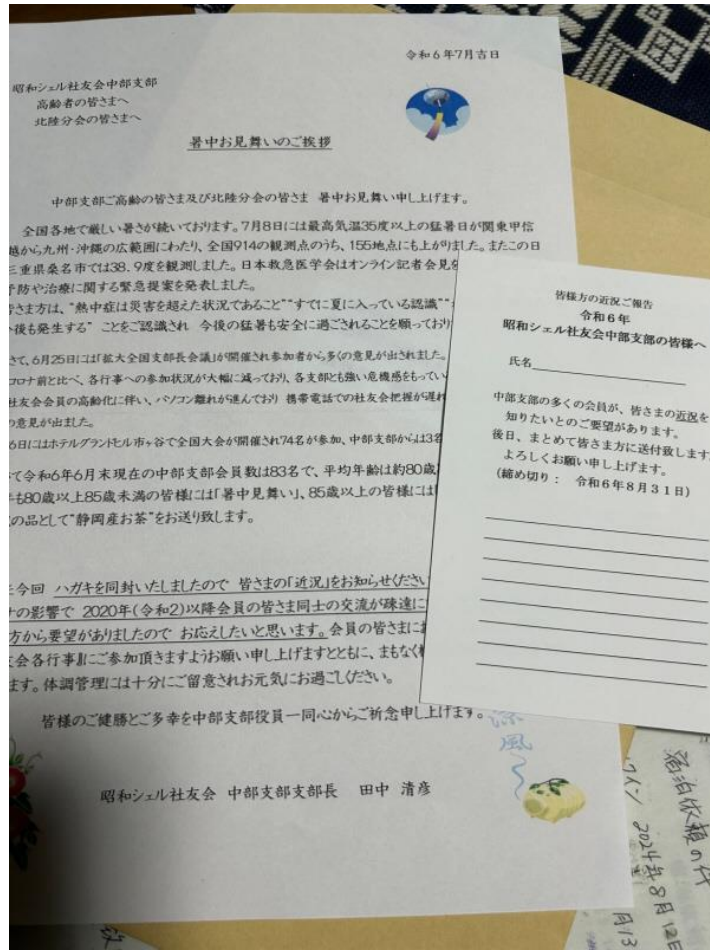 令和6年7月吉日
昭和シェル社友会中部支部
高齢者の皆さまへ
北陸分会の皆さまへ
暑中お見舞いのご挨拶
中部支部ご高齢の皆さま及び北陸分会の皆さま 暑中お見舞い申し上げます。
全国各地で厳しい暑さが続いております。7月8日には最高気温35度以上の猛暑日が関東甲信
越から九州・沖縄の広範囲にわたり、全国914の観測点のうち、155地点にも上がりました。またこの日
三重県桑名市では38.9度を観測しました。日本救急医学会はオンライン記者会見を
予防や治療に関する緊急提案を発表しました。
皆さま方は、"熱中症は災害を超えた状況であること""すでに夏に入っている認識"
後も発生する" ことをご認識され 今後の猛暑も安全に過ごされることを願っており
さて、6月25日には「拡大全国支部長会議」が開催され参加者から多くの意見が出されました。
コロナ前と比べ、各行事への参加状況が大幅に減っており、各支部とも強い危機感をもってい
社友会会員の高齢化に伴い、パソコン離れが進んでおり 携帯電話での社友会把握が遅れ
の意見が出ました。
6日にはホテルグランドヒル市ヶ谷で全国大会が開催され74名が参加、中部支部からは3名
て令和6年6月末現在の中部支部会員数は83名で、平均年齢は約80歳
も80歳以上85歳未満の皆様には「暑中見舞い」、85歳以上の皆様には
の品として"静岡産お茶"をお送り致します。
今回 ハガキを同封いたしましたので 皆さまの「近況」をお知らせください
ナの影響で 2020年(令和2)以降会員の皆さま同士の交流が疎遠に
方から要望がありましたので お応えしたいと思います。会員の皆さまに
友会各行事』にご参加頂きますようお願い申し上げますとともに、まもなく
ます。体調管理には十分にご留意されお元気にお過ごしください。
皆様のご健勝とご多幸を中部支部役員一同心からご祈念申し上げます。
昭和シェル社友会 中部支部支部長 田中 清彦
涼風
皆様方の近況ご報告
令和6年
昭和シェル社友会中部支部の皆様へ
氏名
中部支部の多くの会員が、皆さまの近況を
知りたいとのご要望があります。
後日、まとめて皆さま方に送付致します
よろしくお願い申し上げます。
(締め切り: 令和6年8月31日)
宿泊依頼の件
2024年8月12日
月13